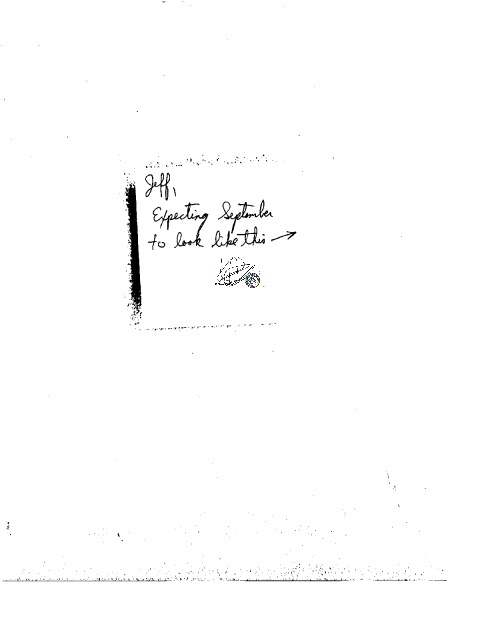 Jeff,
Expecting September
to look like this →